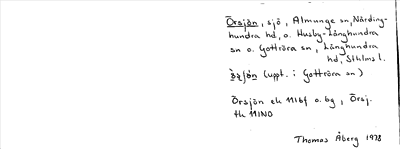 Örsjön, sjö, Almunge sn, Närding-
hundra hd, o. Husby-Långhundra
sn o. Gottröra sn, Långhundra
hd, Sthlms l.
(uppt. i Gottröra sn)
Örsjön ek 11I6f o. bg, Örsj.
tk 11INO
Thomas Åberg 1978